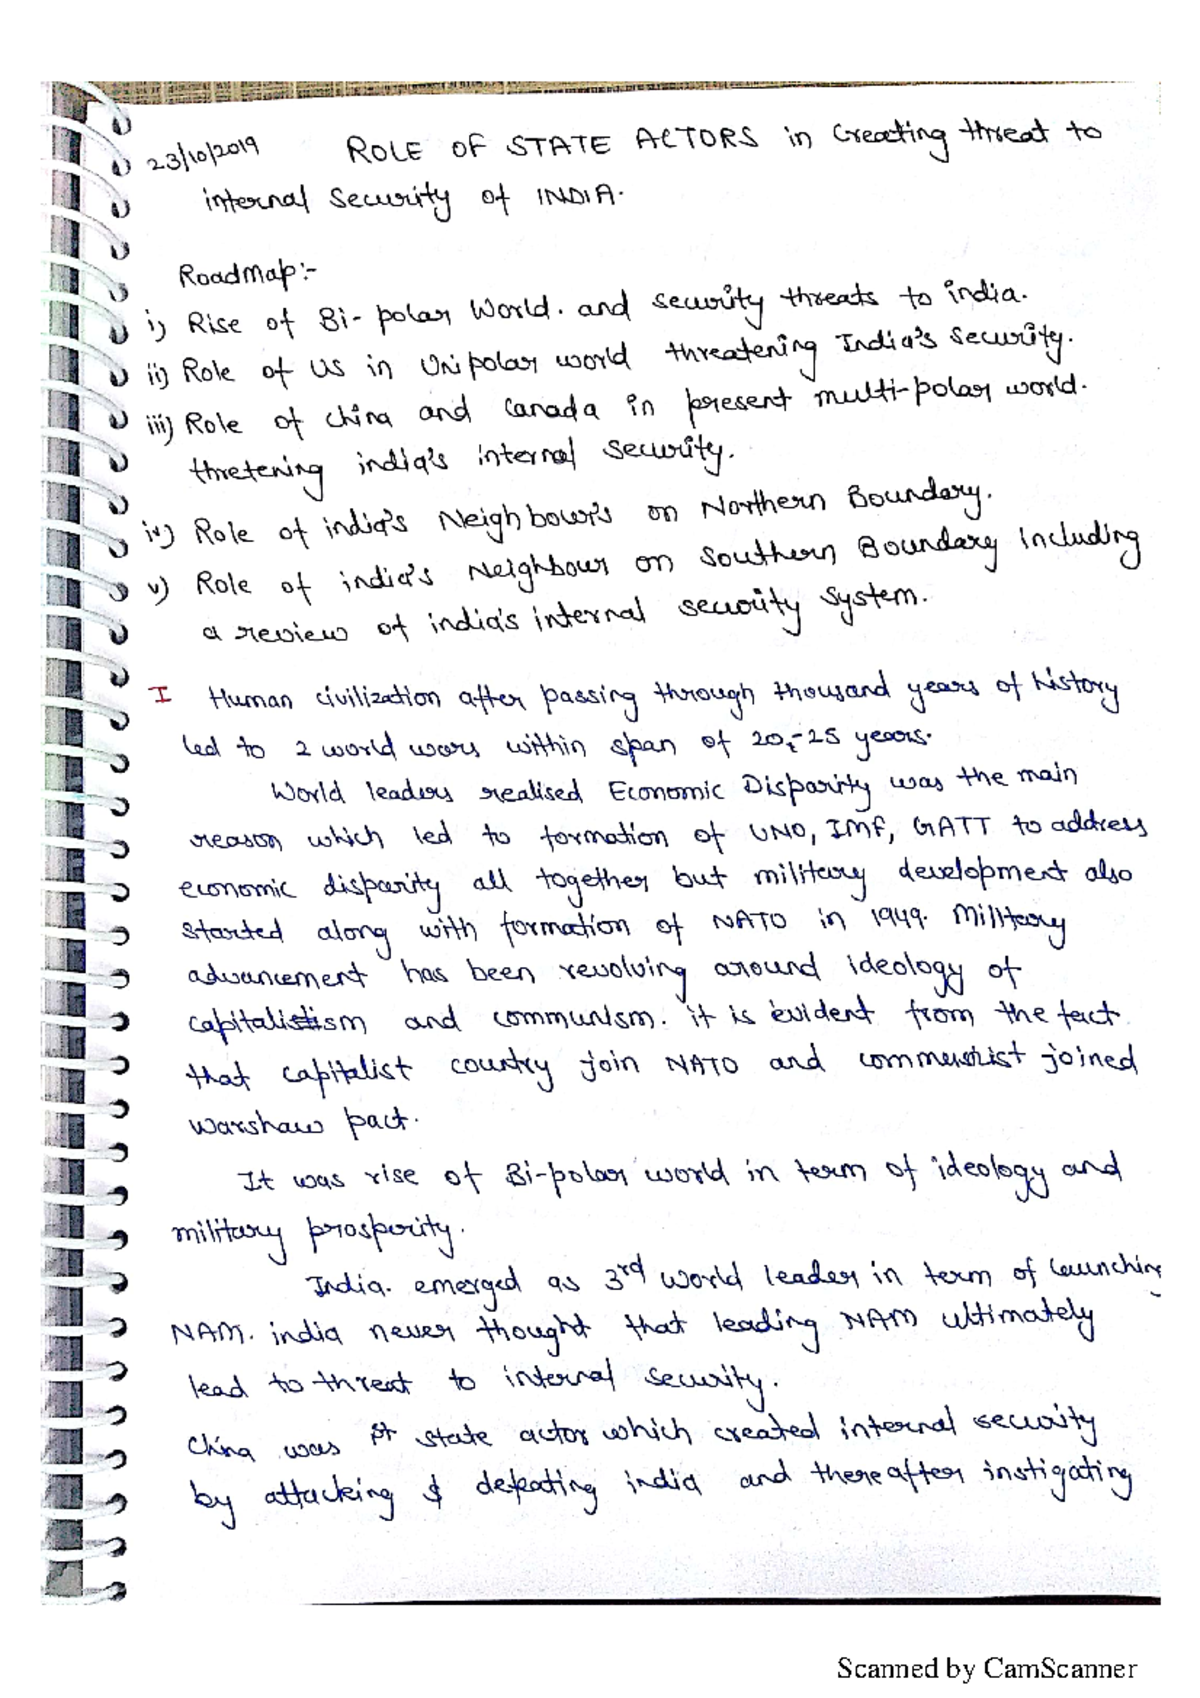 23/10/2019 ROLE OF STATE ACTORS in Creating threat to
internal Security of INDIA.
Roadmap:-
i) Rise of Bi-polar World. and security threats to india.
ii) Role of US in Unipolar world threatening India's Security.
iii) Role of China and Canada in present multi-polar world.
thretening india's internal Security.
iv) Role of india's Neighbour's on Northern Boundary.
v) Role of india's Neighbour on Southern Boundary including
a review of india's internal security system.
I Human civilization after passing through thousand years of history
led to 2 world wars within span of 20-25 years.
World leaders realised Economic Disparity was the main
reason which led to formation of UNO, IMF, GATT to address
economic disparity all together but military development also
started along with formation of NATO in 1949. Military
advancement has been revolving around ideology of
capitalism and communism. it is evident from the fact
that capitalist country join NATO and communist joined
warshaw pact.
It was rise of Bi-polar world in term of ideology and
military prosperity.
India. emerged as 3rd world leader in term of launching
NAM. india never thought that leading NAM ultimately
lead to threat to internal security.
China was state actor which created internal security
by attacking & defeating india and thereafter instigating
Scanned by CamScanner